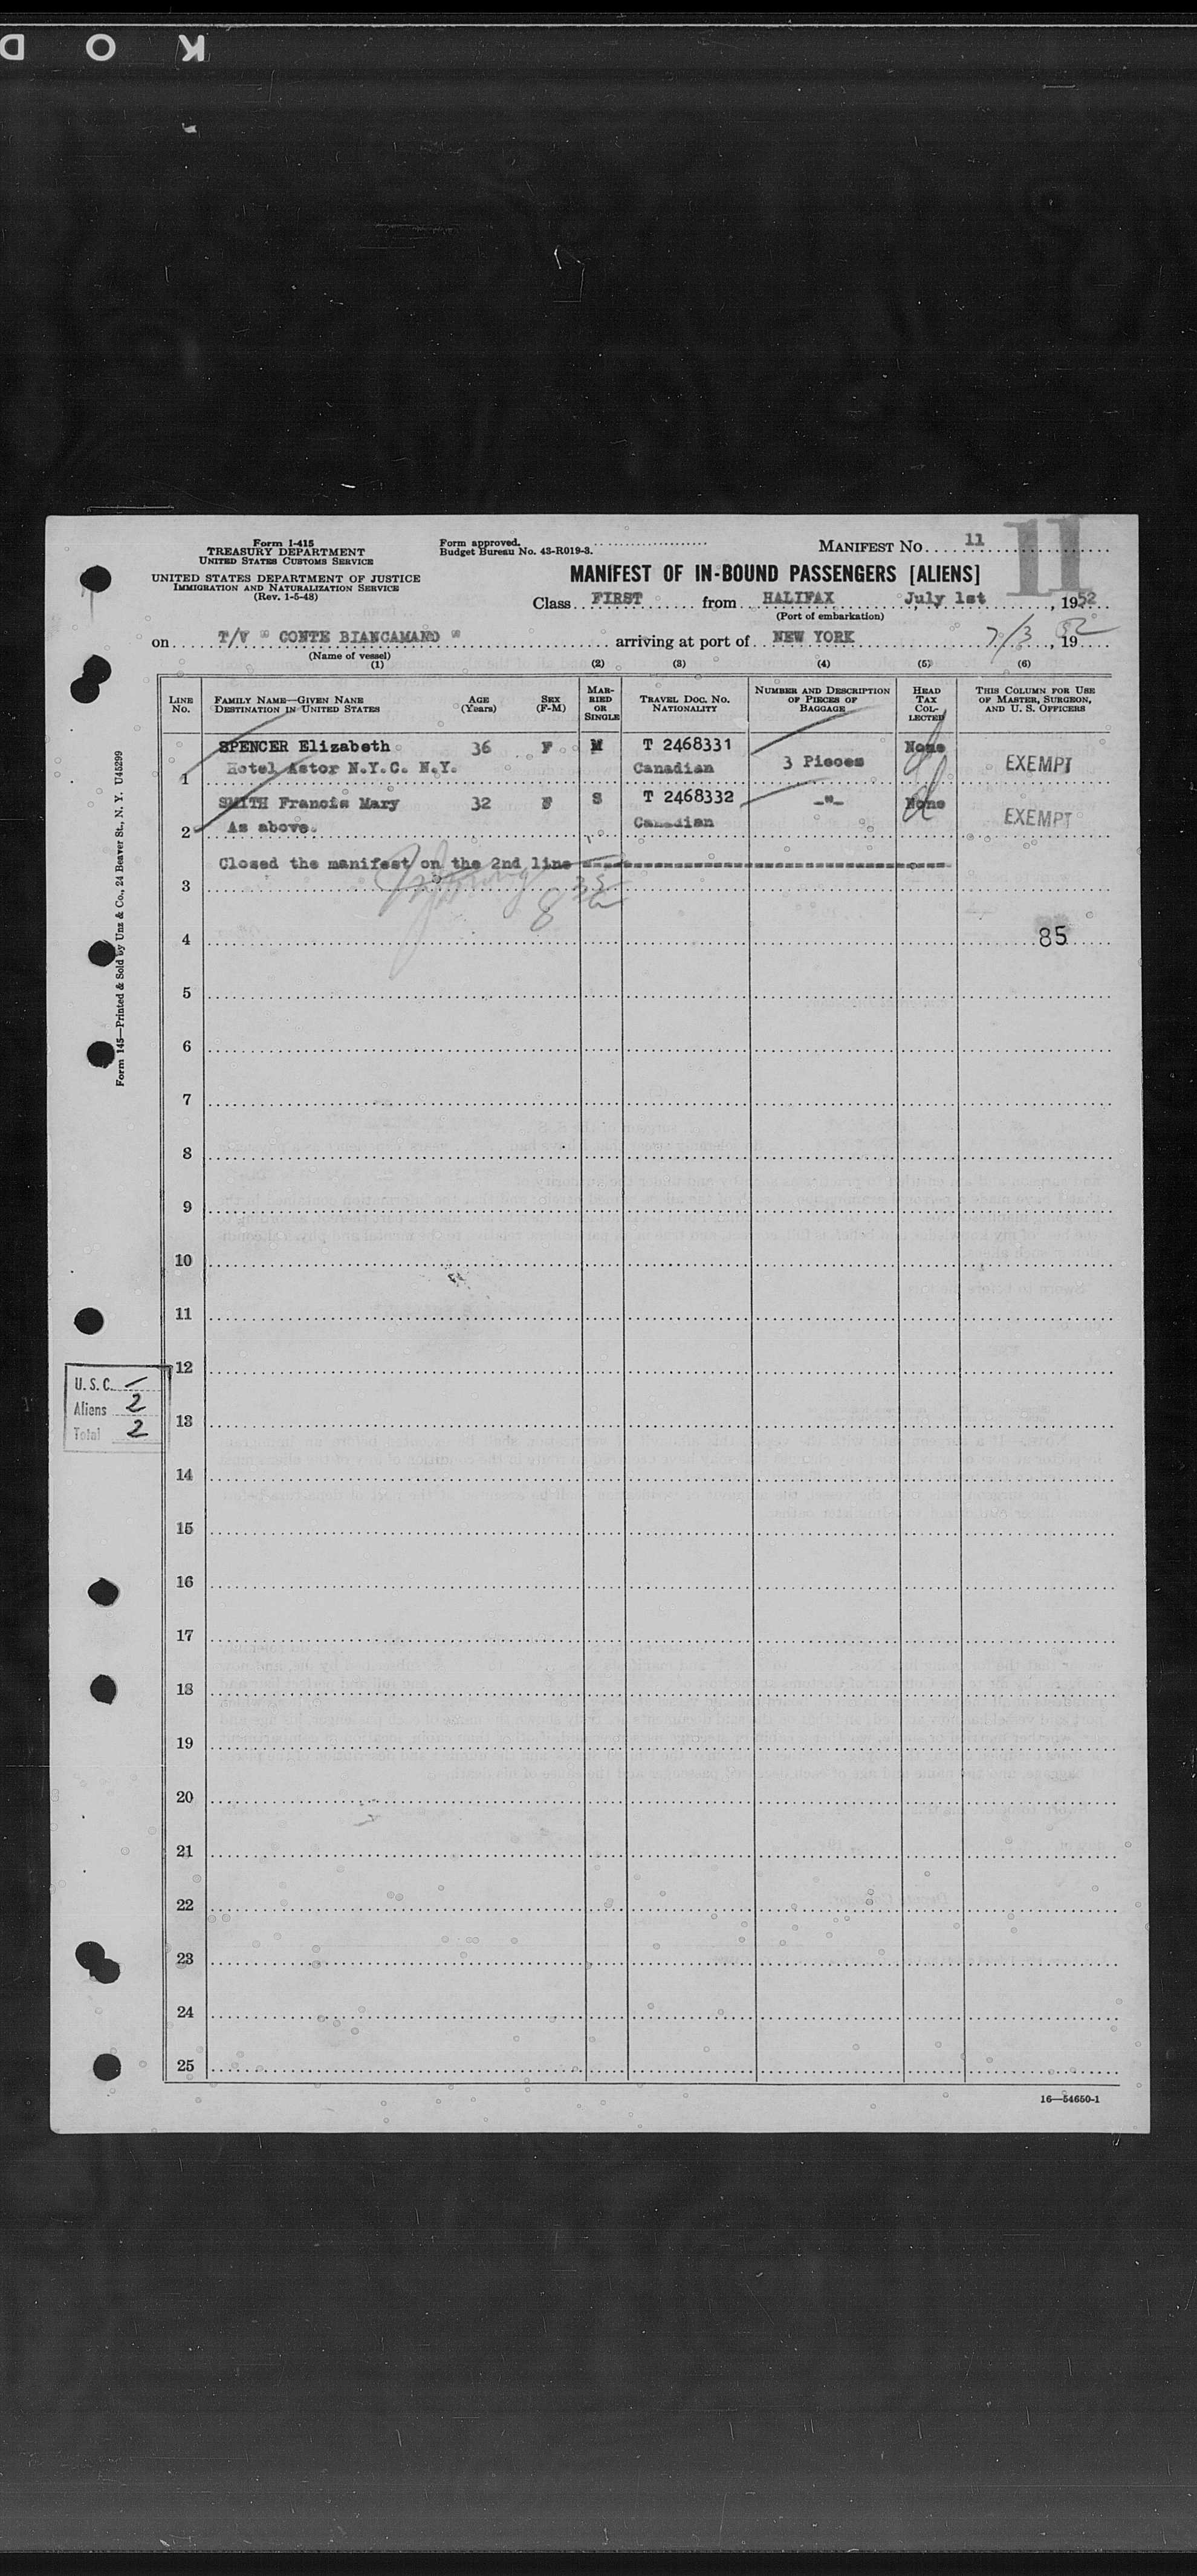 KOD
Form I-415
TREASURY DEPARTMENT
UNITED STATES CUSTOMS SERVICE
UNITED STATES DEPARTMENT OF JUSTICE
IMMIGRATION AND NATURALIZATION SERVICE
(Rev. 1-5-48)
Form approved.
Budget Bureau No. 43-R019-3.
MANIFEST NO. 11
11
MANIFEST OF IN-BOUND PASSENGERS [ALIENS]
Class FIRST from HALIFAX July 1st, 1952
(Port of embarkation)
on T/V " CONTE BIANCAMANO " arriving at port of NEW YORK 7/3, 1952
(Name of vessel)
(1) (2) (3) (4) (5) (6)
LINE NO.
FAMILY NAME—GIVEN NANE
DESTINATION IN UNITED STATES
AGE (Years)
SEX (F-M)
MARRIED OR SINGLE
TRAVEL DOC. NO. NATIONALITY
NUMBER AND DESCRIPTION OF PIECES OF BAGGAGE
HEAD TAX COLLECTED
THIS COLUMN FOR USE OF MASTER, SURGEON, AND U. S. OFFICERS
SPENCER Elizabeth 36 F M T 2468331 None
1 Hotel Astor N.Y.C. N.Y. Canadian 3 Pieces EXEMPT
SMITH Francis Mary 32 F S T 2468332 -"- None
2 As above. Canadian EXEMPT
Closed the manifest on the 2nd line
3
4 85
5
6
7
8
9
10
11
12
13
14
15
16
17
18
19
20
21
22
23
24
25
U.S.C. –
Aliens 2
Total 2
Form 145—Printed & Sold by Unz & Co., 24 Beaver St., N. Y. U45299
16—54650-1